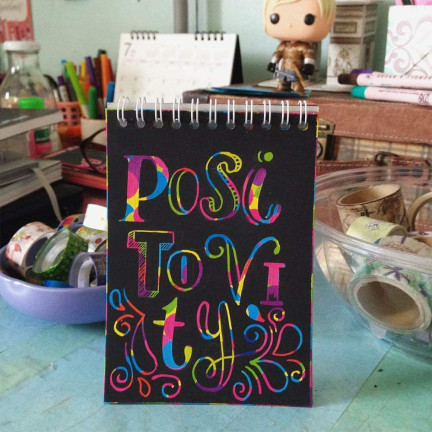 PoSi
TIVI
ty